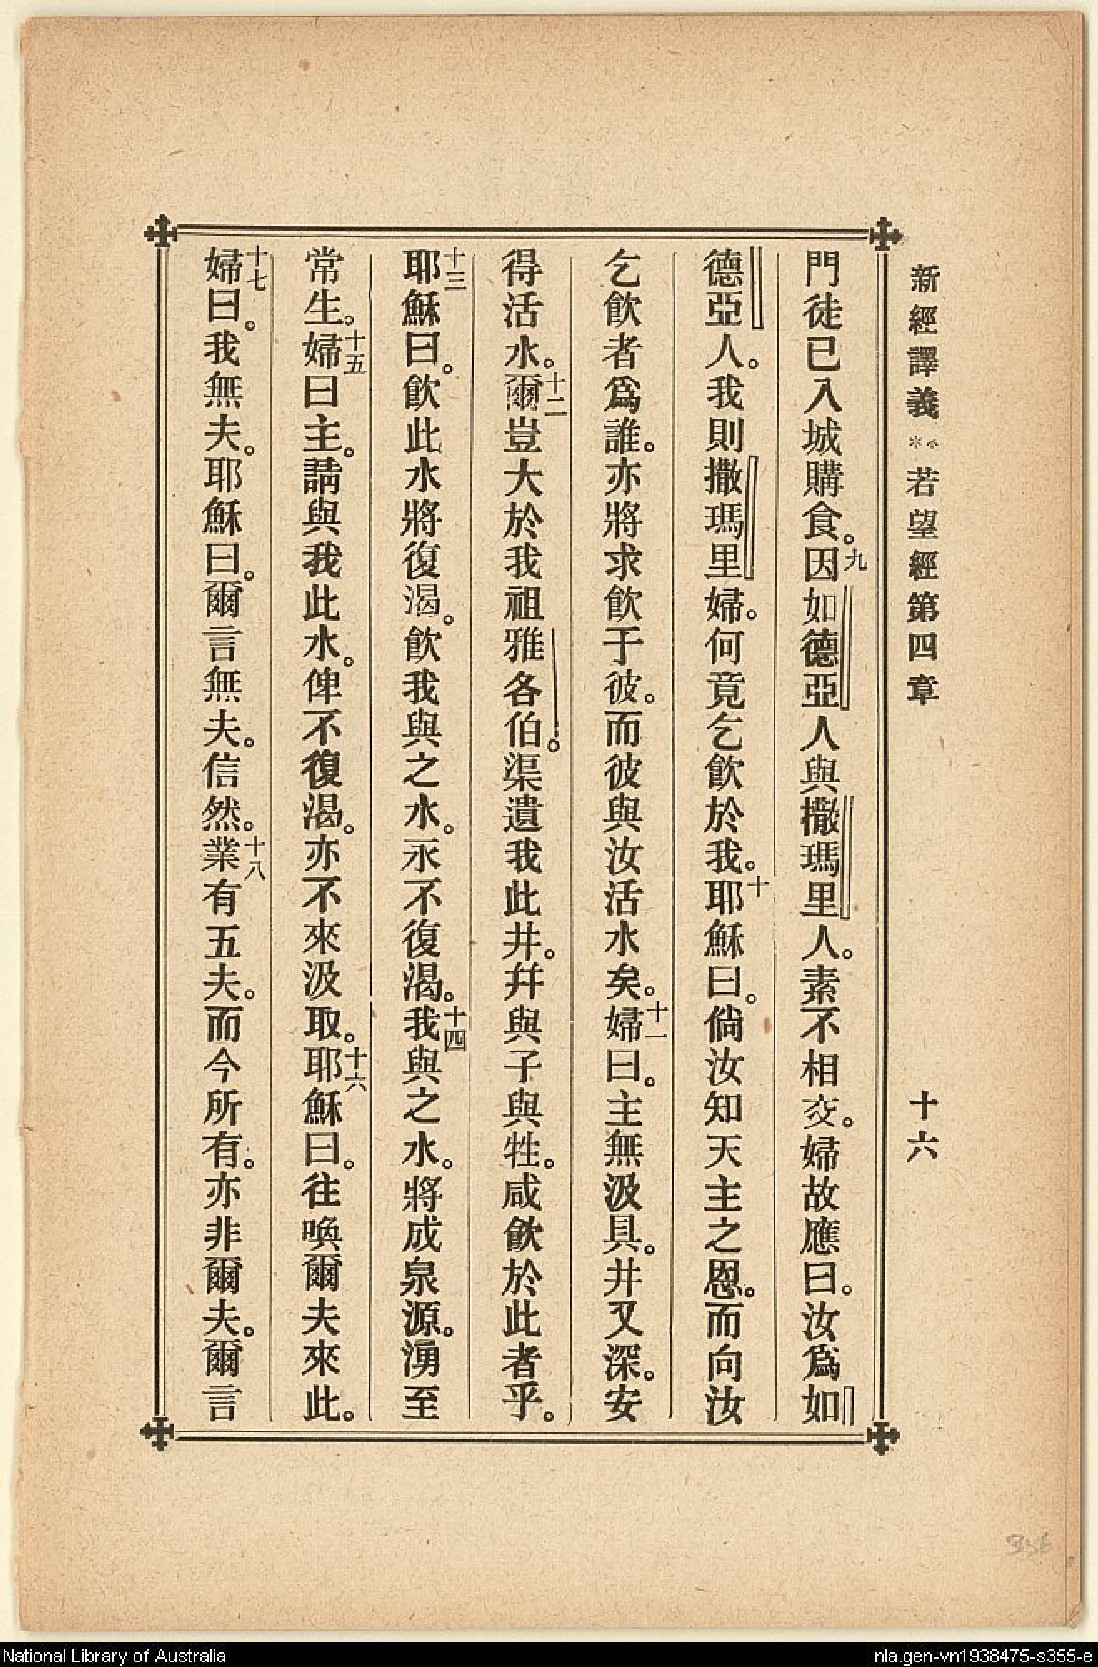 新經譯義 ** 若望經第四章 十六
門徒已入城購食。九因如德亞人與撒瑪里人。素不相交。婦故應曰。汝爲如
德亞人。我則撒瑪里婦。何竟乞飮於我。十耶穌曰。倘汝知天主之恩。而向汝
乞飮者爲誰。亦將求飮于彼。而彼與汝活水矣。十一婦曰。主無汲具。井又深。安
得活水。十二爾豈大於我祖雅各伯。渠遺我此井。幷與子與牲。咸飮於此者乎。
十三耶穌曰。飮此水將復渴。飮我與之水。永不復渴。十四我與之水。將成泉源。湧至
常生。十五婦曰主。請與我此水。俾不復渴。亦不來汲取。十六耶穌曰。往喚爾夫來此。
十七婦曰。我無夫。耶穌曰。爾言無夫。信然。十八業有五夫。而今所有。亦非爾夫。爾言
National Library of Australia
nla.gen-vn1938475-s355-e